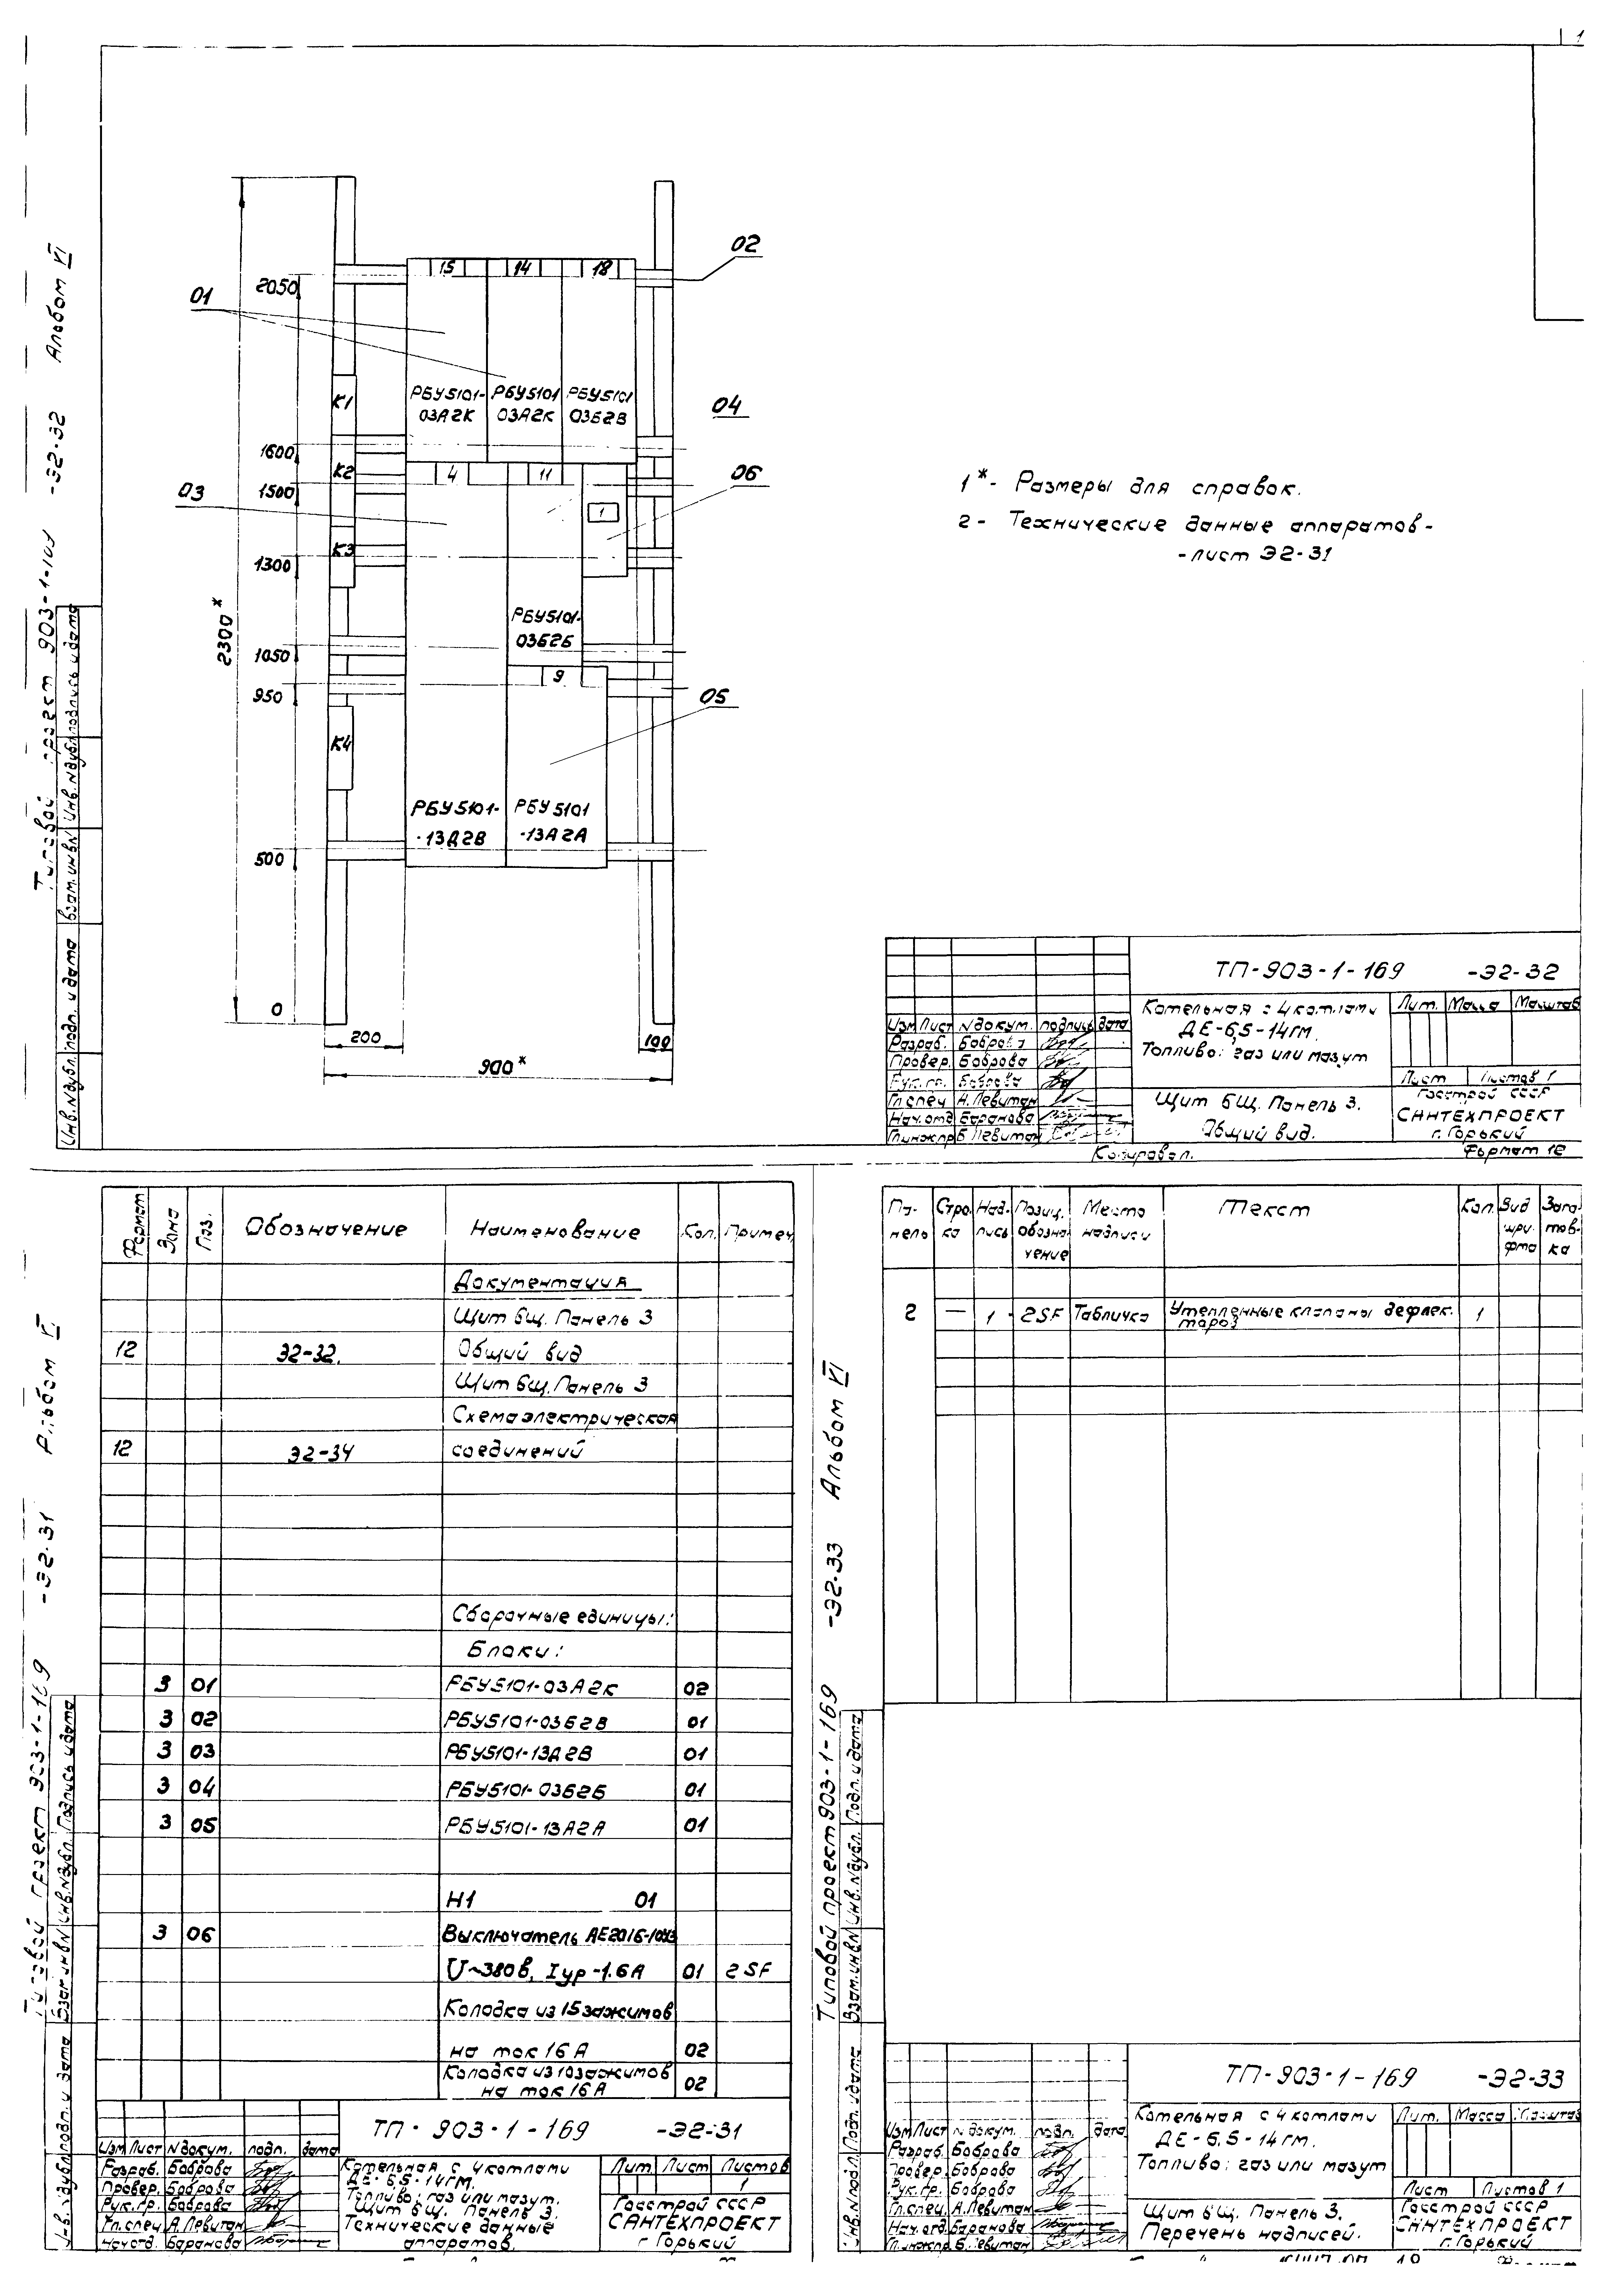 1
Альбом VI
-Э2-32
Типовой проект 903-1-169
2050
1600
1500
1300
1050
950
500
0
2300*
200
900*
100
01
02
03
04
05
06
15
14
18
РБУ5101-
03А2К
РБУ5101
03А2К
РБУ5101
03Б2В
К1
К2
К3
К4
4
11
1
РБУ5101-
03Б2Б
9
РБУ5101-
-13Д2В
РБУ5101
-13А2А
1*- Размеры для справок.
2- Технические данные аппаратов-
-лист Э2-31
Инв.Nдубл. подп. и дата Взам.инвN Инв.Nдубл. подпись и дата
ТП-903-1-169 -Э2-32
Котельная с 4 котлами
ДЕ-6,5-14гм.
Топливо: газ или мазут
Лит. Масса Масштаб
Изм Лист Nдокум. подпись дата
Разраб. Боброва
Провер. Боброва
Рук.гр. Боброва
Гл.спец А.Левитан
Нач.отд Баранова
Гл.инж.пр Б.Левитан
Лист Листов 1
Щит 6Щ. Панель 3.
Общий вид.
Госстрой СССР
САНТЕХПРОЕКТ
г.Горький
Копировал.
Формат 12
Альбом VI
-Э2-31
Типовой проект 903-1-169
Формат Зона Поз. Обозначение Наименование Кол. Примеч.
Документация
Щит 6щ. Панель 3
12 Э2-32. Общий вид
Щит 6щ. Панель 3
Схема электрическая
12 Э2-34 соединений
Сборочные единицы:
Блоки:
3 01 РБУ5101-03А2К 02
3 02 РБУ5101-03Б2В 01
3 03 РБУ5101-13Д2В 01
3 04 РБУ5101-03Б2Б 01
3 05 РБУ5101-13А2А 01
Н1 01
3 06 Выключатель
U~380в, Iур-1.6А 01 2SF
Колодка из 15 зажимов
на ток 16А 02
Колодка из 10 зажимов
на ток 16А 02
ТП-903-1-169 -Э2-31
Изм Лист Nдокум. подп. дата
Разраб. Боброва
Провер. Боброва
Рук.гр. Боброва
Гл.спец А.Левитан
Нач.отд. Баранова
Котельная с 4 котлами
ДЕ-6,5-14гм.
Топливо: газ или мазут.
Щит 6щ. Панель 3.
Технические данные
аппаратов.
Лит. Лист Листов
1
Госстрой СССР
САНТЕХПРОЕКТ
г Горький
Альбом VI
-Э2-33
Типовой проект 903-1-169
Взам.инвN Инв.Nдубл. Подп. и дата
Инв.Nподл. Подп. и дата
Па-
нель
Стро-
ка
Над-
пись
Позиц.
обозна-
чение
Место
надписи
Текст
Кол.
Вид
шри-
фта
Заго-
тов-
ка
2 — 1 2SF Табличка Утепленные клапаны дефлек-
торов 1
ТП-903-1-169 -Э2-33
Котельная с 4 котлами
ДЕ-6,5-14гм.
Топливо: газ или мазут
Лит. Масса Масштаб
Изм Лист Nдокум. подп. дата
Разраб. Боброва
Провер. Боброва
Рук.гр. Боброва
Гл.спец. А.Левитан
Нач.отд. Баранова
Гл.инж.пр. Б.Левитан
Лист Листов 1
Щит 6Щ. Панель 3.
Перечень надписей.
Госстрой СССР
САНТЕХПРОЕКТ
г.Горький